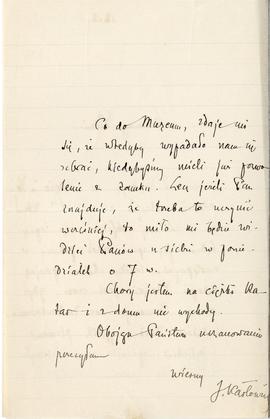 Co do Muzeum, zdaje mi
się, że wtedyby wypadało nam się
zebrać, kiedybyśmy mieli już pozwo-
lenie z zamku. Lecz jeżeli Pan
znajduje, że trzeba to uczynić
wcześniej, to miło mi będzie wi-
dzieć Panów u siebie w ponie-
działek o 7 w.
Chory jestem na ciężki ka-
tar i z domu nie wychodzę.
Obojgu Państwu uszanowanie
przesyłam
wierny
J. Karłowicz